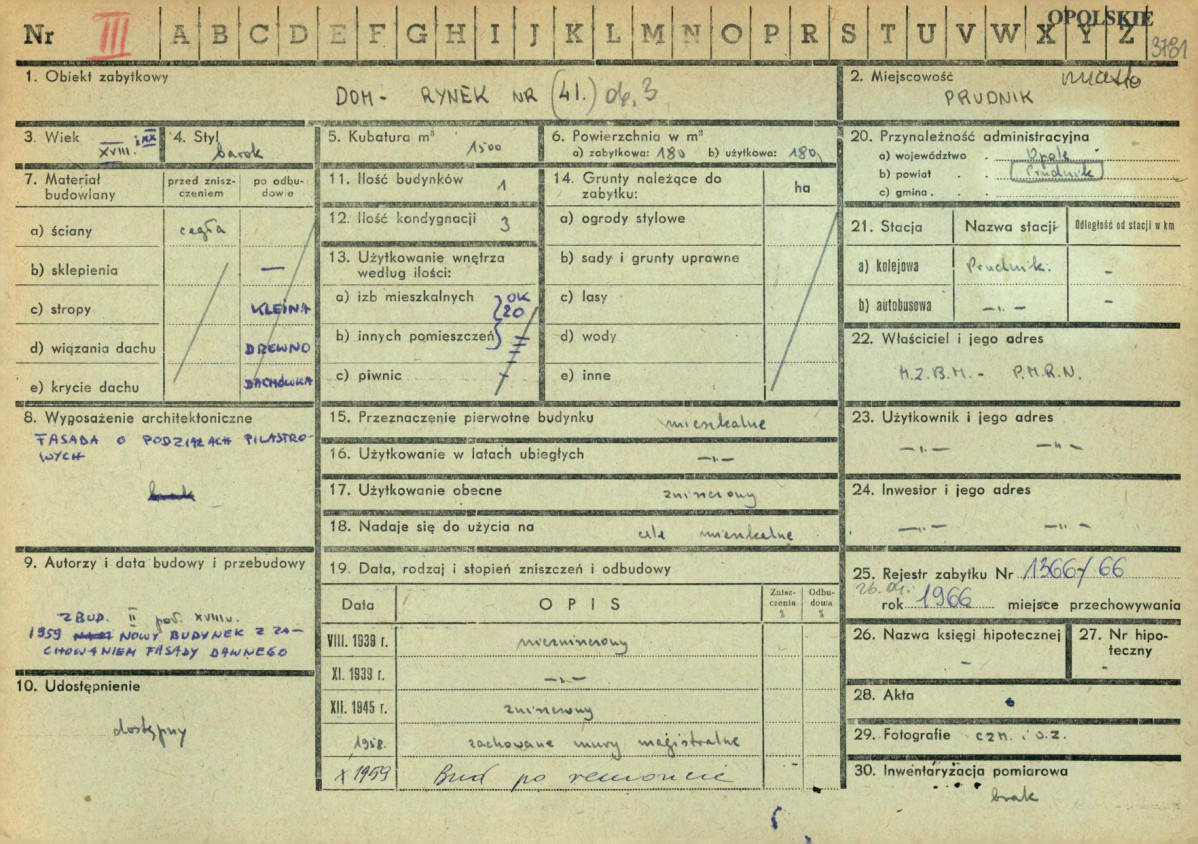 OPOLSKIE
Nr III A B C D E F G H I J K L M N O P R S T U V W X Y Z
3781
1. Obiekt zabytkowy
DOM - RYNEK NR (41.) ob. 3
2. Miejscowość miasto
PRUDNIK
3. Wiek
XVIII. i XX
4. Styl
barok
5. Kubatura m³
1500
6. Powierzchnia w m²
a) zabytkowa: 180 b) użytkowa: 180
20. Przynależność administracyjna
a) województwo . Opole
b) powiat . . Prudnik
c) gmina . .
7. Materiał budowlany
przed znisz-
czeniem
po odbu-
dowie
a) ściany cegła
b) sklepienia —
c) stropy KLEINA
d) wiązania dachu DREWNO
e) krycie dachu DACHÓWKA
11. Ilość budynków 1
12. Ilość kondygnacji 3
13. Użytkowanie wnętrza
według ilości:
a) izb mieszkalnych OK
20
b) innych pomieszczeń
c) piwnic -
14. Grunty należące do
zabytku:
ha
a) ogrody stylowe
b) sady i grunty uprawne
c) lasy
d) wody
e) inne
21. Stacja Nazwa stacji Odległość od stacji w km
a) kolejowa Prudnik. -
b) autobusowa —„— -
22. Właściciel i jego adres
M.Z.B.M. - P.M.R.N.
8. Wyposażenie architektoniczne
FASADA O PODZIAŁACH PILASTRO-
WYCH
brak
15. Przeznaczenie pierwotne budynku mieszkalne
16. Użytkowanie w latach ubiegłych —„—
17. Użytkowanie obecne zniszczony
18. Nadaje się do użycia na cele mieszkalne
23. Użytkownik i jego adres
—„— —„—
24. Inwestor i jego adres
—„— —„—
9. Autorzy i data budowy i przebudowy
ZBUD. II poł. XVIII w.
1959 NOWY BUDYNEK Z ZA-
CHOWANIEM FASADY DAWNEGO
10. Udostępnienie
dostępny
19. Data, rodzaj i stopień zniszczeń i odbudowy
Data OPIS Znisz-
czenia
%
Odbu-
dowa
%
VIII. 1939 r. niezniszczony
XI. 1939 r. —„—
XII. 1945 r. zniszczony
1958. zachowane mury magistralne
X 1959 Bud po remoncie
25. Rejestr zabytku Nr 1366/66
26.09.
rok 1966 miejsce przechowywania
26. Nazwa księgi hipotecznej
-
27. Nr hipo-
teczny
-
28. Akta
29. Fotografie CZM. i O.Z.
30. Inwentaryzacja pomiarowa
brak